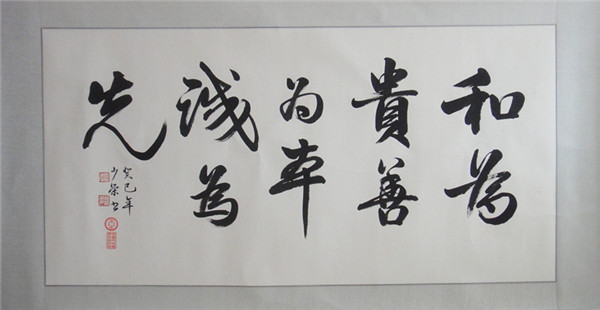 和為
貴善
为本
誠為
先
癸巳年
少荣书